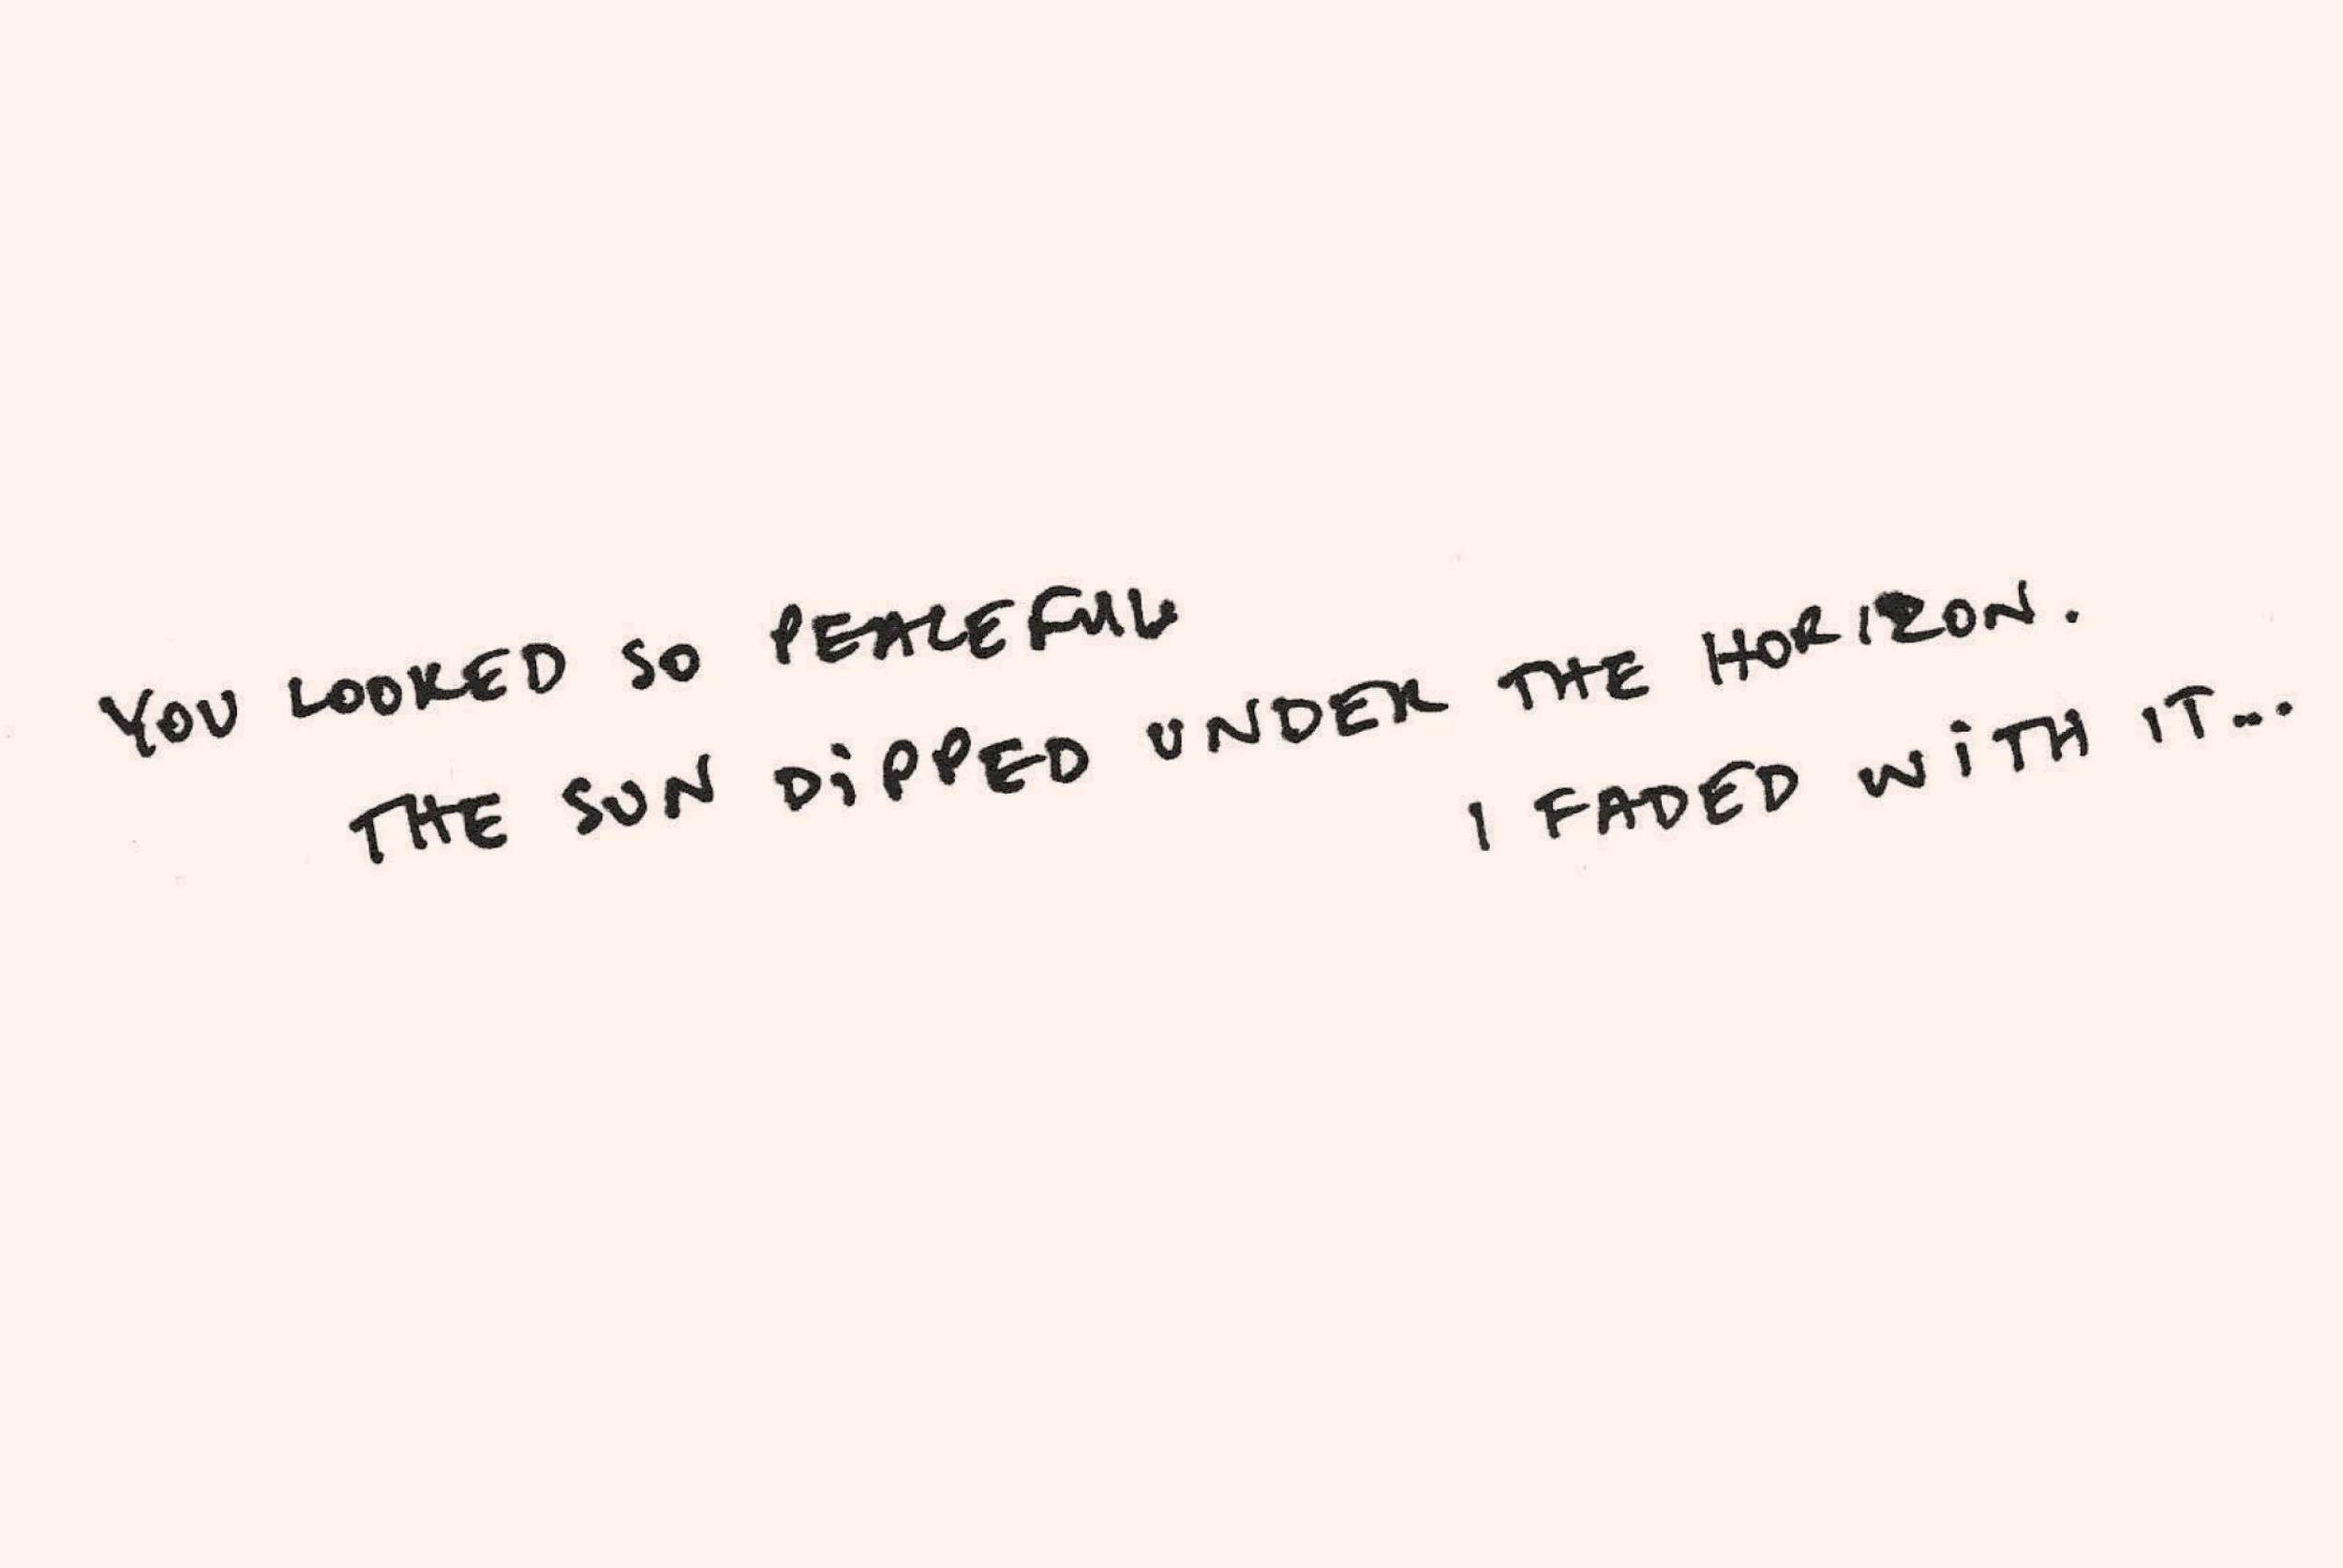 YOU LOOKED SO PEACEFUL
THE SUN DiPPED UNDER THE HORIZON.
I FADED WiTH IT...